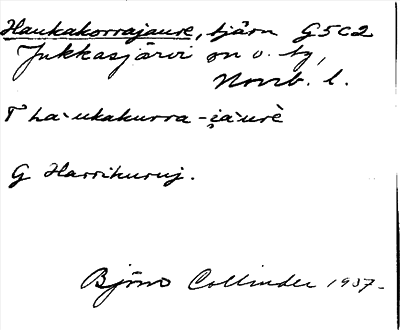 Haukakorrajaure, tjärn G5C2
Jukkasjärvi sn o. tg,
Norrb. l.
T ha·ukakurra-i̯a·urè
G Harrikuruj.
Björn Collinder 1937.